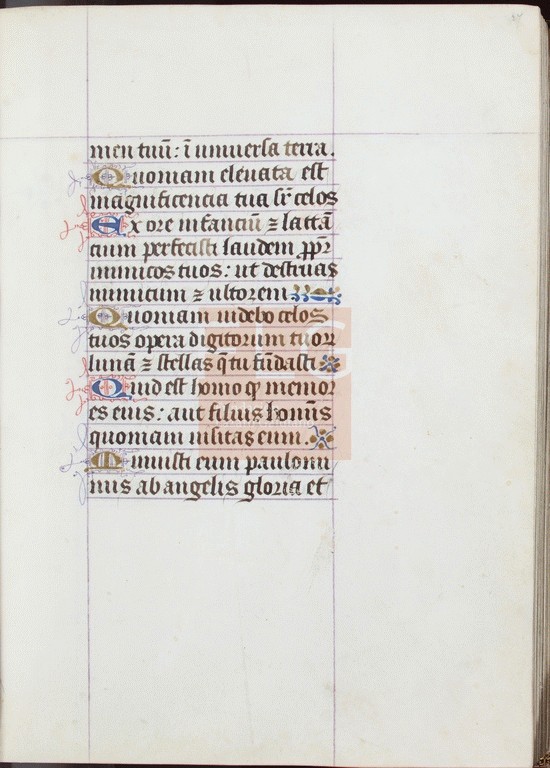 men tuū: ī uniuersa terra.
Quoniam eleuata est
magnificencia tua sr̄ celos
Ex ore infanciū ⁊ lattā
cium perfecisti laudem ꝓpr̄
inimicos tuos: ut destruas
inimicum ⁊ ultorem
Quoniam uidebo celos
tuos opera digitorum tuoꝝ
lunā ⁊ stellas q̄ tu fūdasti
Quid est homo ꝙ memor
es eius: aut filius homīs
quoniam uisitas eum.
Minuisti eum paulomi
nus ab angelis gloria et